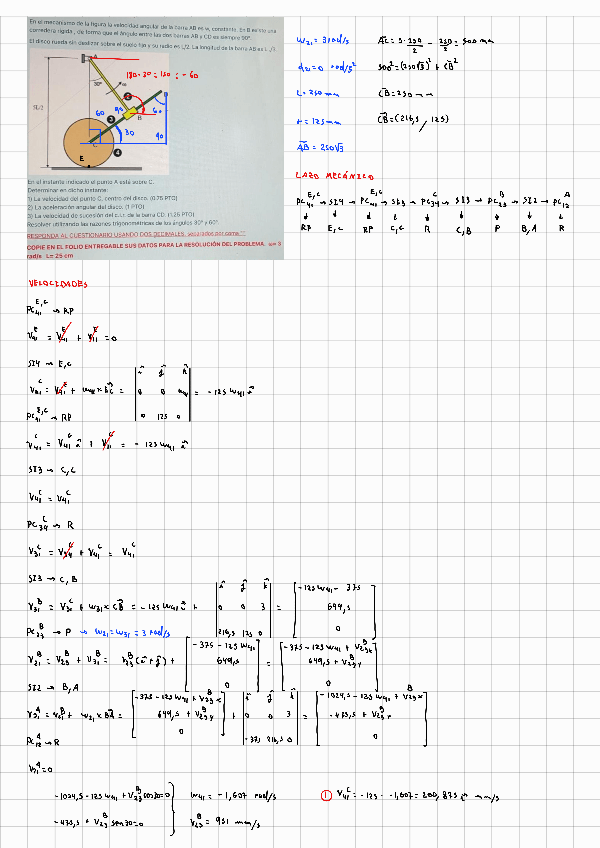 En el mecanismo de la figura la velocidad angular de la barra AB es w, constante. En B existe una
corredera rígida, de forma que el ángulo entre las dos barras AB y CD es siempre 90°.
El disco rueda sin deslizar sobre el suelo fijo y su radio es L/2. La longitud de la barra AB es L√3.
A
180 - 30 = 150 : - 60
30°
D
5L/2
60
90
B
60
2
3
30
90
C
4
E
En el instante indicado el punto A está sobre C.
Determinar en dicho instante:
1) La velocidad del punto C, centro del disco. (0.75 PTO)
2) La aceleración angular del disco. (1 PTO)
3) La velocidad de sucesión del c.i.r. de la barra CD. (1.25 PTO)
Resolver utilizando las razones trigonométricas de los ángulos 30° y 60°.
RESPONDA AL CUESTIONARIO USANDO DOS DECIMALES, separados por coma ","
COPIE EN EL FOLIO ENTREGABLE SUS DATOS PARA LA RESOLUCIÓN DEL PROBLEMA. ω= 3
rad/s L= 25 cm
w21 = 3 rad/s
α21 = 0 rad/s²
L = 250 mm
r = 125 mm
AB = 250√3
AC = 5·250/2 - 250/2 = 500 mm
500² = (250√3)² + CB²
CB = 250 mm
CB = (216,5 / 125)
LAZO MECÁNICO
PC41 E,C → SI4 → PC41 E,C → SI3 → PC34 C → SI3 → PC23 B → SI2 → PC12 A
RP E,C RP C,C R C,B P B,A R
VELOCIDADES
PC41 E,C → RP
V41 E = V41 E + V11 E = 0
SI4 → E,C
V41 C = V41 E + w41 × EC = | i j k | 0 0 w41 | 0 125 0 | = - 125 w41 i
PC41 E,C → RP
SI3 → C,C
V41 C = V41 C
PC34 C → R
V31 C = V34 C + V41 C = V41 C
SI3 → C,B
V31 B = V31 C + w31 × CB = - 125 w41 i + | i j k | 0 0 3 | 216,5 125 0 | = [ -125 w41 - 375 | 649,5 | 0 ]
PC23 B → P → w21 = w31 = 3 rad/s
V21 B = V23 B + V31 B = V23 B (i + j) + [ - 375 - 125 w41 | 649,5 | 0 ] = [ - 375 - 125 w41 + V23x B | 649,5 + V23y B | 0 ]
SI2 → B,A
V21 A = V21 B + w21 × BA = [ - 375 - 125 w41 + V23x B | 649,5 + V23y B | 0 ] + | i j k | 0 0 3 | = [ - 1024,5 - 125 w41 + V23x B | - 475,5 + V23y B | 0 ]
PC12 A → R
V21 A = 0
- 1024,5 - 125 w41 + V23 B cos 30 = 0
- 475,5 + V23 B sen 30 = 0
w41 = - 1,607 rad/s
V23 B = 951 mm/s
1 V41 C = - 125 · - 1,607 = 200,875 i mm/s